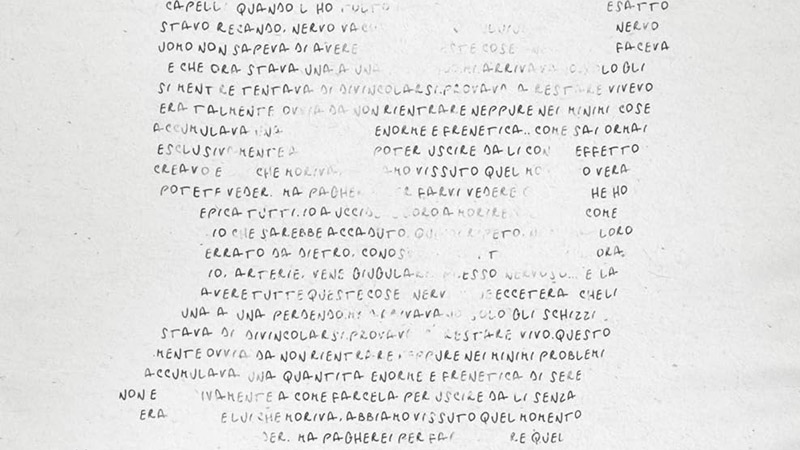 CAPELLI QUANDO L HO ESATTO
STAVO RECANDO. NERVO NERVO
UOMO NON SAPEVA DI AVERE ESTE COSE FACEVA
E CHE ORA STAVA UNA A UNA MI ARRIVAVA LO GLI
SI MENTRE TENTAVA DI DIVINCOLARSI. PROVAVA A RESTARE VIVEVO
ERA TALMENTE OVVIA DA NON RIENTRARE NEPPURE NEI MINIMI COSE
ACCUMULAVA UNA ENORME E FRENETICA.. COME SAI ORMAI
ESCLUSIVAMENTE A POTER USCIRE DA LI CON EFFETTO
CREAVO E CHE MORIVA. AMO VISSUTO QUEL MO O VERA
VEDER. MA PAGHE R FARVI VEDERE HE HO
EPICA TUTTI. IO A UCCID LORO A MORIRE COME
IO CHE SAREBBE ACCADUTO. LORO
ERRATO DA DIETRO. CONOS T ORA.
IO. ARTERIE. VENE GIUGULAR ESSO NERVOSO... E LA
AVERE TUTTE QUESTE COSE NERV ECCETERA CHE LI
UNA A UNA PERDENDO. MI ARRIVAVANO SOLO GLI SCHIZZI
STAVA DI DIVINCOLARSI. PROVAVA RESTARE VIVO. QUESTO
MENTE OVVIA DA NON RIENTRARE NEPPURE NEI MINIMI PROBLEMI
ACCUMULAVA UNA QUANTITA ENORME E FRENETICA DI SERE
NON E IVAMENTE A COME FARCELA PER USCIRE DA LI SENZA
ERA E LUI CHE MORIVA. ABBIAMO VISSUTO QUEL MOMENTO
DER. MA PAGHEREI PER FAI RE QUEL